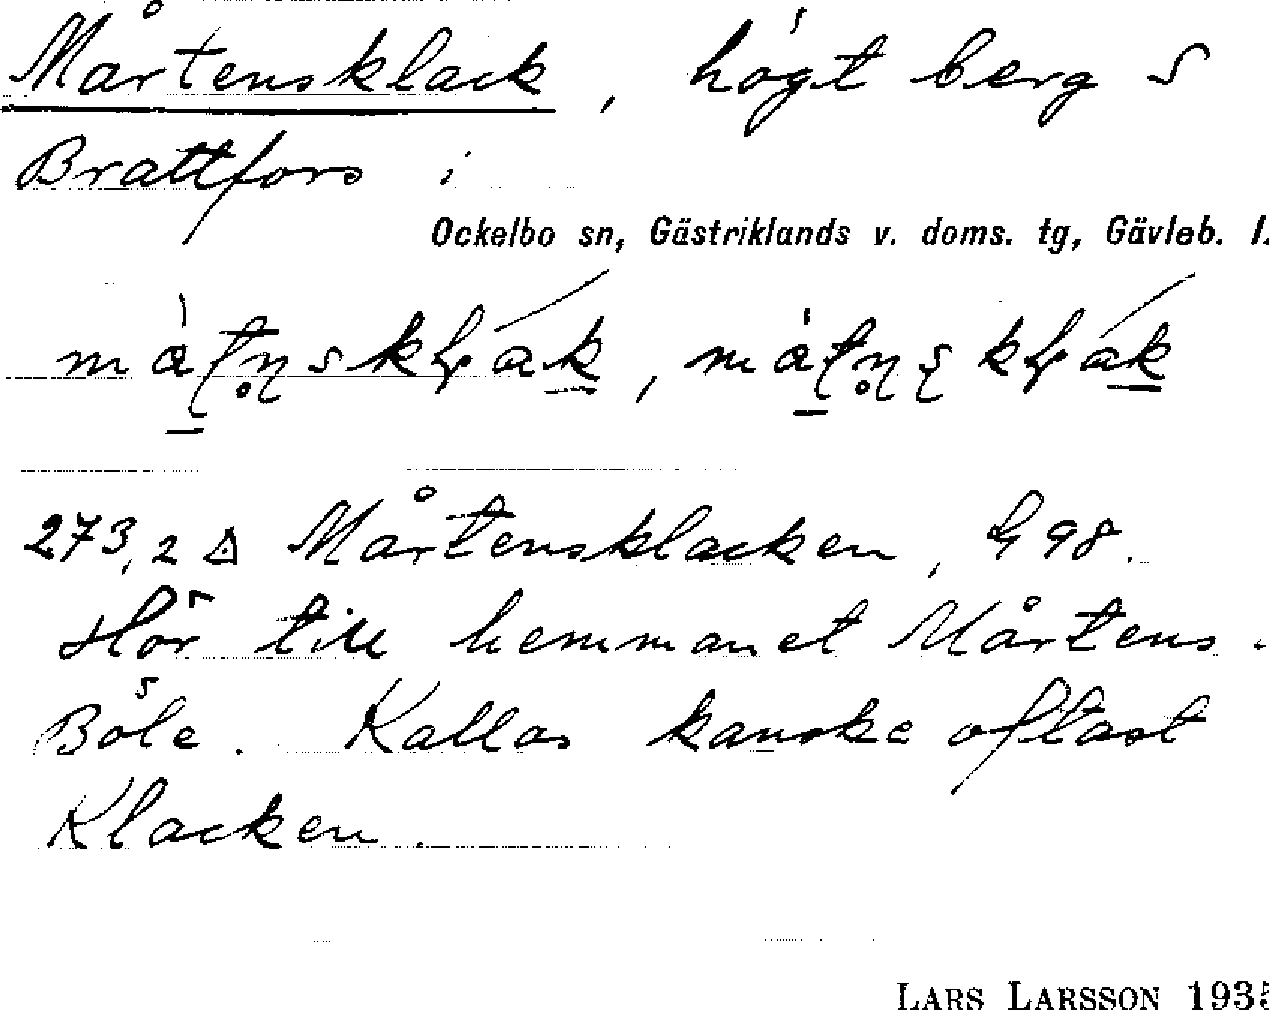 Mårtensklack, högt berg S
Brattfors i
Ockelbo sn, Gästriklands v. doms. tg, Gävleb. l.
273,2 △ Mårtensklacken, G 98.
Hör till hemmanet Mårtens-
Böle. Kallas kanske oftast
Klacken.
LARS LARSSON 1935